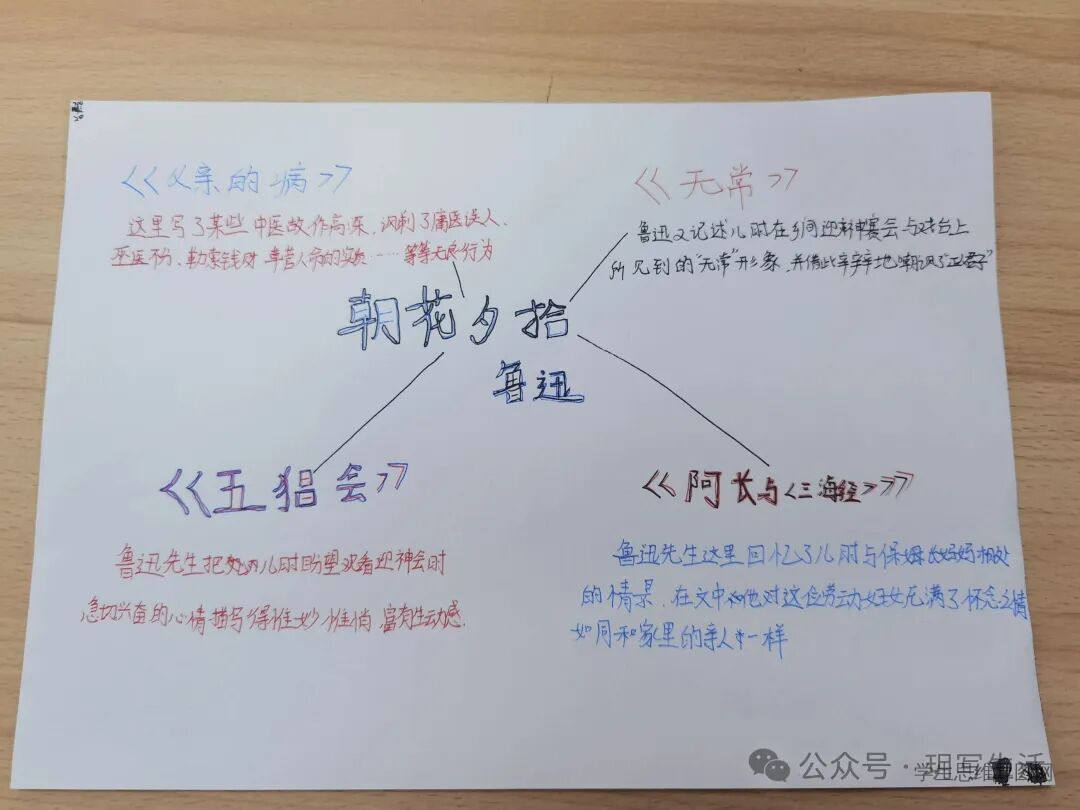 <<父亲的病>>
这里写了某些中医故作高深、讽刺了庸医误人、
巫医不分、勒索钱财 草菅人命的实质……等等无良行为
<<无常>>
鲁迅又记述儿时在乡间迎神赛会与戏台上
所见到的"无常"形象,并借此辛辣地嘲讽了"正人君子"
朝花夕拾
鲁迅
<<五猖会>>
鲁迅先生把儿时盼望 观看迎神会时
急切兴奋的心情描写得惟妙惟俏,富有生动感.
<<阿长与<三海经>>>
鲁迅先生这里回忆了儿时与保姆长妈妈相处
的情景,在文中他对这位劳动妇女充满了怀念之情
如同和家里的亲人一样
公众号·玥写生活
学生思维导图网